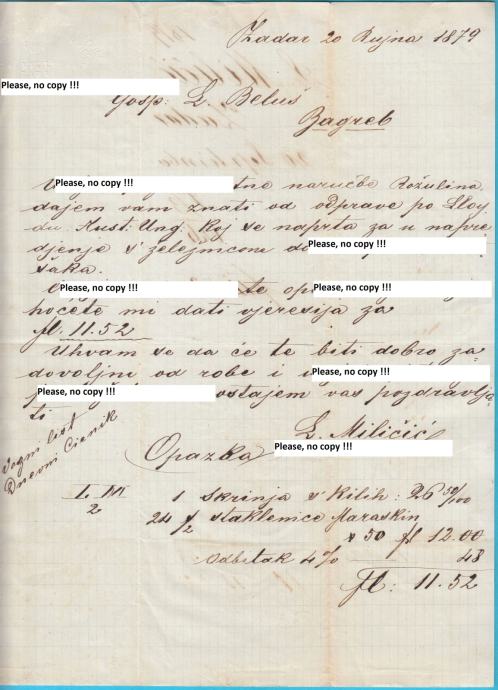 Zadar 20 Rujna 1879
Please, no copy !!!
Gosp: L. Beluš
Zagreb
Please, no copy !!! naručbe Rožulina
dajem vam znati od odprave po Lloy
du Aust: Ung. koj se naprta za u napre
djenje s' železnicom do Please, no copy !!!
šaka.
Please, no copy !!! te Please, no copy !!!
hoćete mi dati vjeresija za
fl. 11.52
Uhvam se da će te biti dobro za
dovoljni od robe i Please, no copy !!!
Please, no copy !!! ostajem vas pozdravlja
ti
L. Miličić
Please, no copy !!!
list
Dnevni Cienik
Opazka
L M
2
1 Skrinja s' Kilih: 26 50/100
24 1/2 staklenice Maraskin
x 50 fl 12.00
Odbitak 4% 48
fl: 11.52